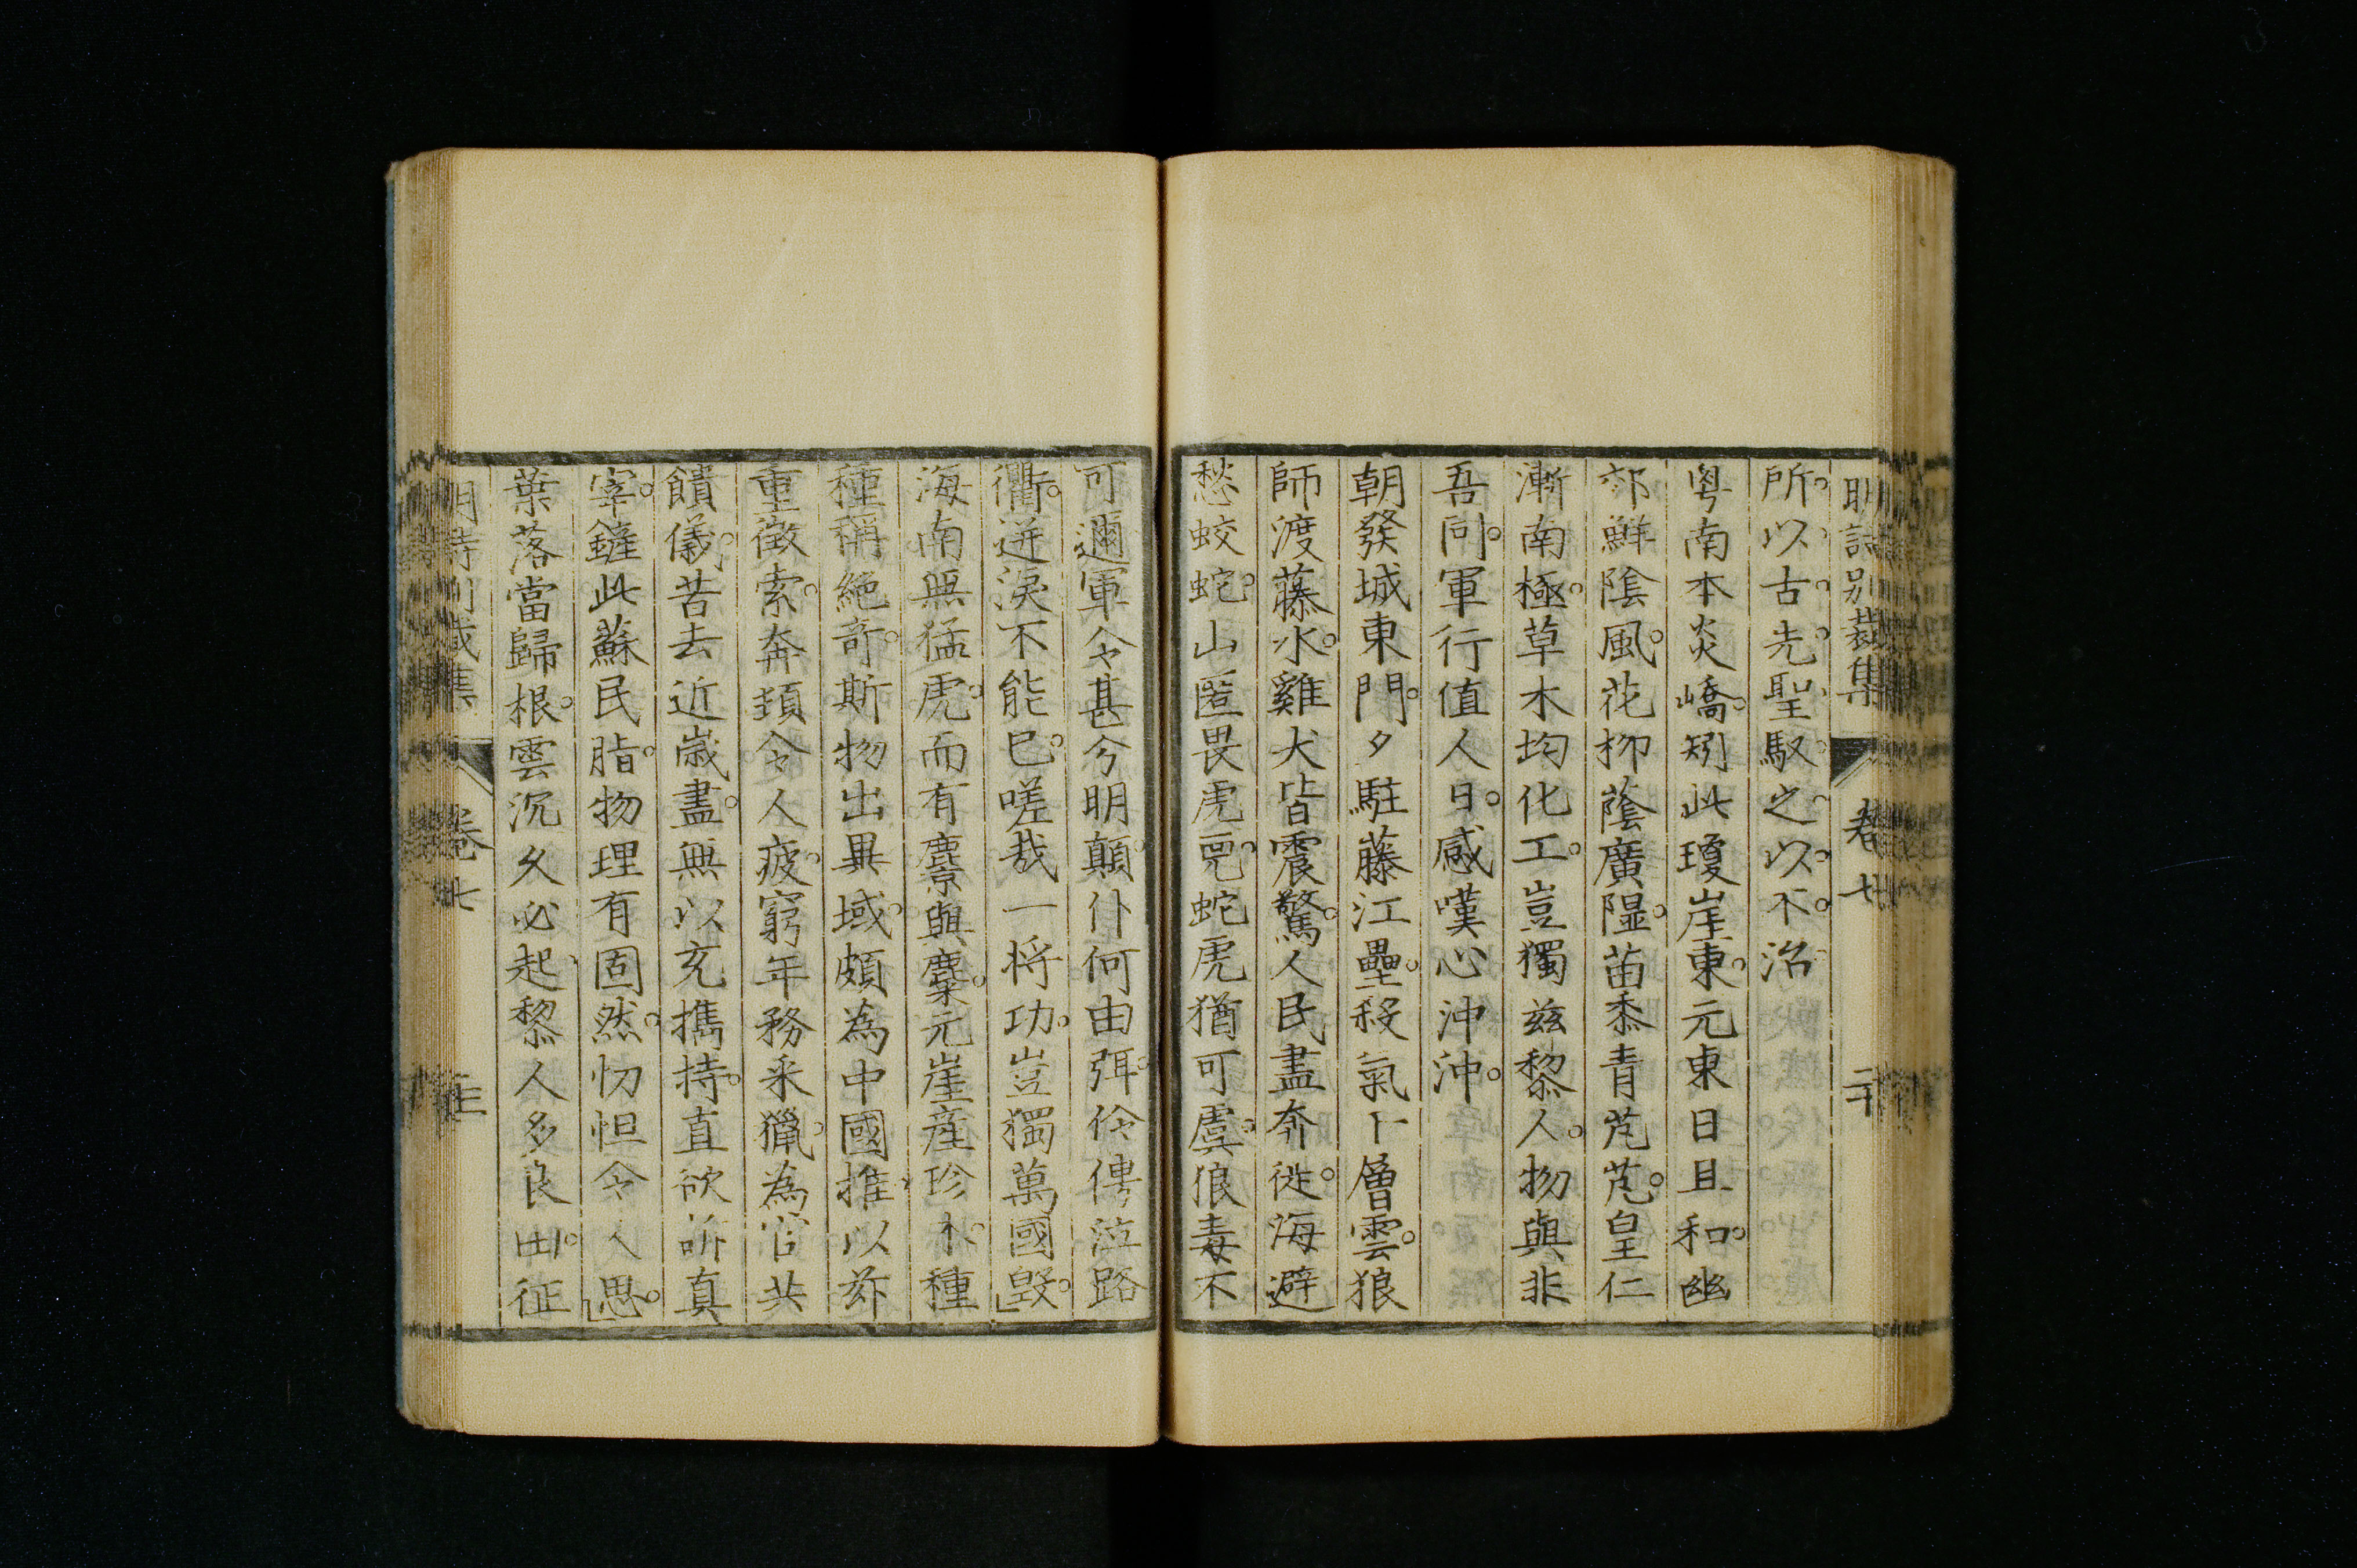 明詩別裁集 卷七 二十
所以古先聖馭之以不治
粤南本炎嶠矧此瓊崖東元東日且和幽
郊鮮陰風花柳蔭廣隰苗黍青芃芃皇仁
漸南極草木均化工豈獨茲黎人物與非
吾同軍行值人日感嘆心沖沖
朝發城東門夕駐藤江壘殺氣卜層雲狼
師渡藤水雞犬皆震驚人民盡奔徙海避
愁蛟蛇山匿畏虎兕蛇虎猶可虞狼毒不
可邇軍令甚分明顛仆何由弭伶俜泣路
衢迸淚不能已嗟哉一將功豈獨萬國毀
海南無猛虎而有麖與麋元崖產珍木種
種稱絕奇斯物出異域頗為中國推以茲
重徵索奔頚令人疲窮年務采獵為官共
饋儀昔去近歲盡無以充攜持直欲訴真
宰鏟此蘇民脂物理有固然忉怛令人思
葉落當歸根雲沉久必起黎人多良田征
明詩別裁集 卷七